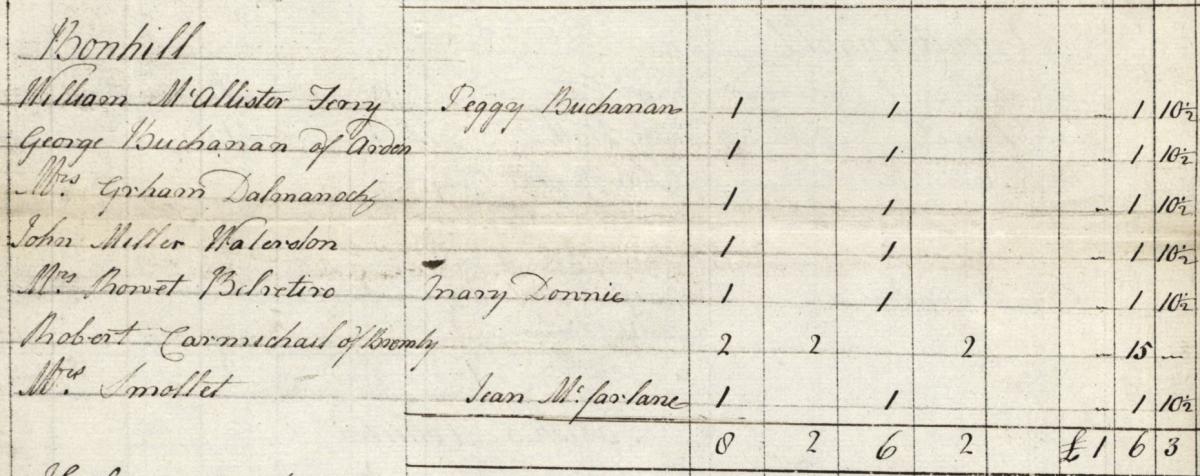 Bonhill
William McAllister Ferry Peggy Buchanan 1 1 " 1 10½
George Buchanan of Arden 1 1 " 1 10½
Mrs Grham Dalmanoch 1 1 " 1 10½
John Miller Waterston 1 1 " 1 10½
Mrs Rowet Belretiro Mary Donnie 1 1 " 1 10½
Robert Carmichail of Bromly 2 2 2 " 15 "
Mrs Smollet Jean Mcfarlane 1 1 " 1 10½
8 2 6 2 £1 6 3